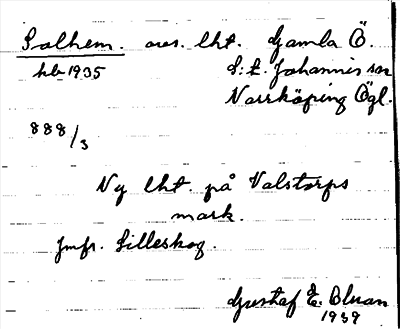 Solhem. avs. lht. Gamla Ö.
hb 1935 S:t Johannis sn
Norrköping Ögl.
888/3
Ny lht. på Valstorps
mark.
Jmfr. Lilleskog.
Gustaf E. Bluan
1939